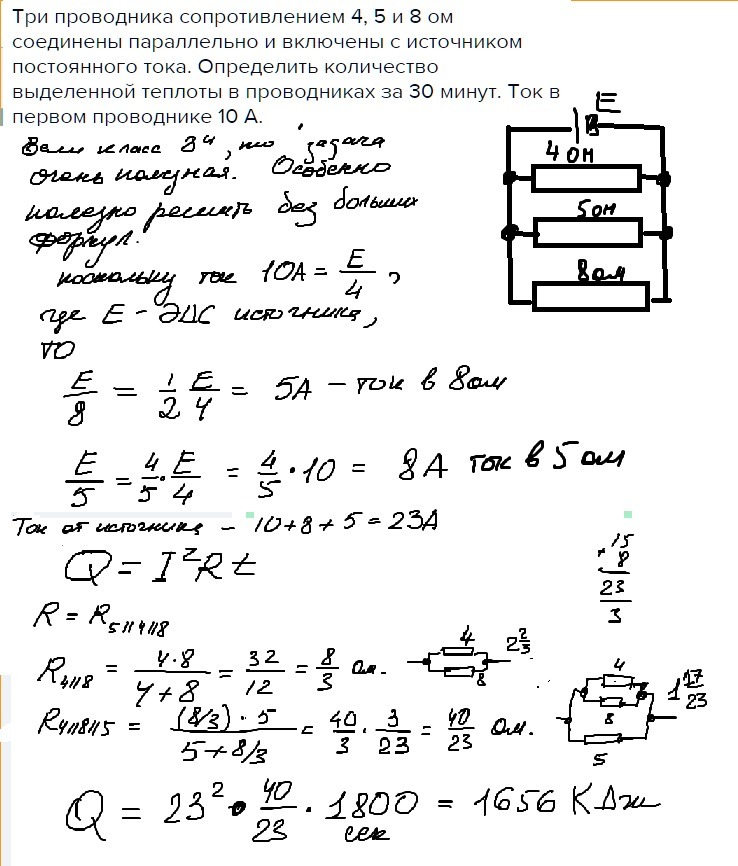 Три проводника сопротивлением 4, 5 и 8 ом
соединены параллельно и включены с источником
постоянного тока. Определить количество
выделенной теплоты в проводниках за 30 минут. Ток в
первом проводнике 10 А.
E
4 ом
5ом
8ом
класс 8ч, то задача
очень полезная. Особенно
полезно решить без больших
формул.
поскольку ток 10A = E/4,
где E - ЭДС источника,
то
E/8 = 1/2 E/4 = 5A – ток в 8ом
E/5 = 4/5 · E/4 = 4/5 · 10 = 8A ток в 5 ом
Ток от источника – 10+8+5=23A
Q = I²Rt
15
+ 8
23
3
R = R5||4||8
R4||8 = 4·8/4+8 = 32/12 = 8/3 ом.
4
8
2 2/3
R4||8||5 = (8/3)·5/5+8/3 = 40/3 · 3/23 = 40/23 ом.
4
8
5
1 17/23
Q = 23² · 40/23 · 1800 = 1656 КДж
сек